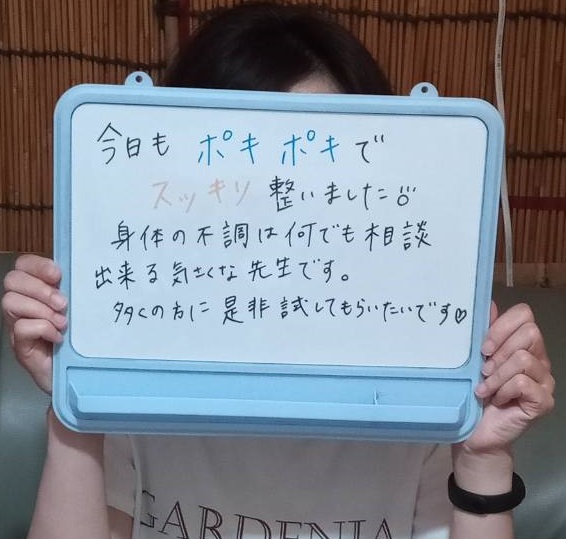 今日も ポキポキで
スッキリ 整いました
身体の不調は何でも相談
出来る気さくな先生です。
多くの方に是非試してもらいたいです♡
GARDENIA